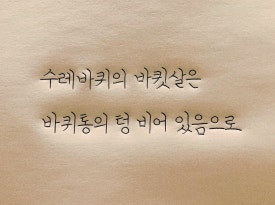 수레바퀴의 바큇살은
바퀴통의 텅 비어 있음으로